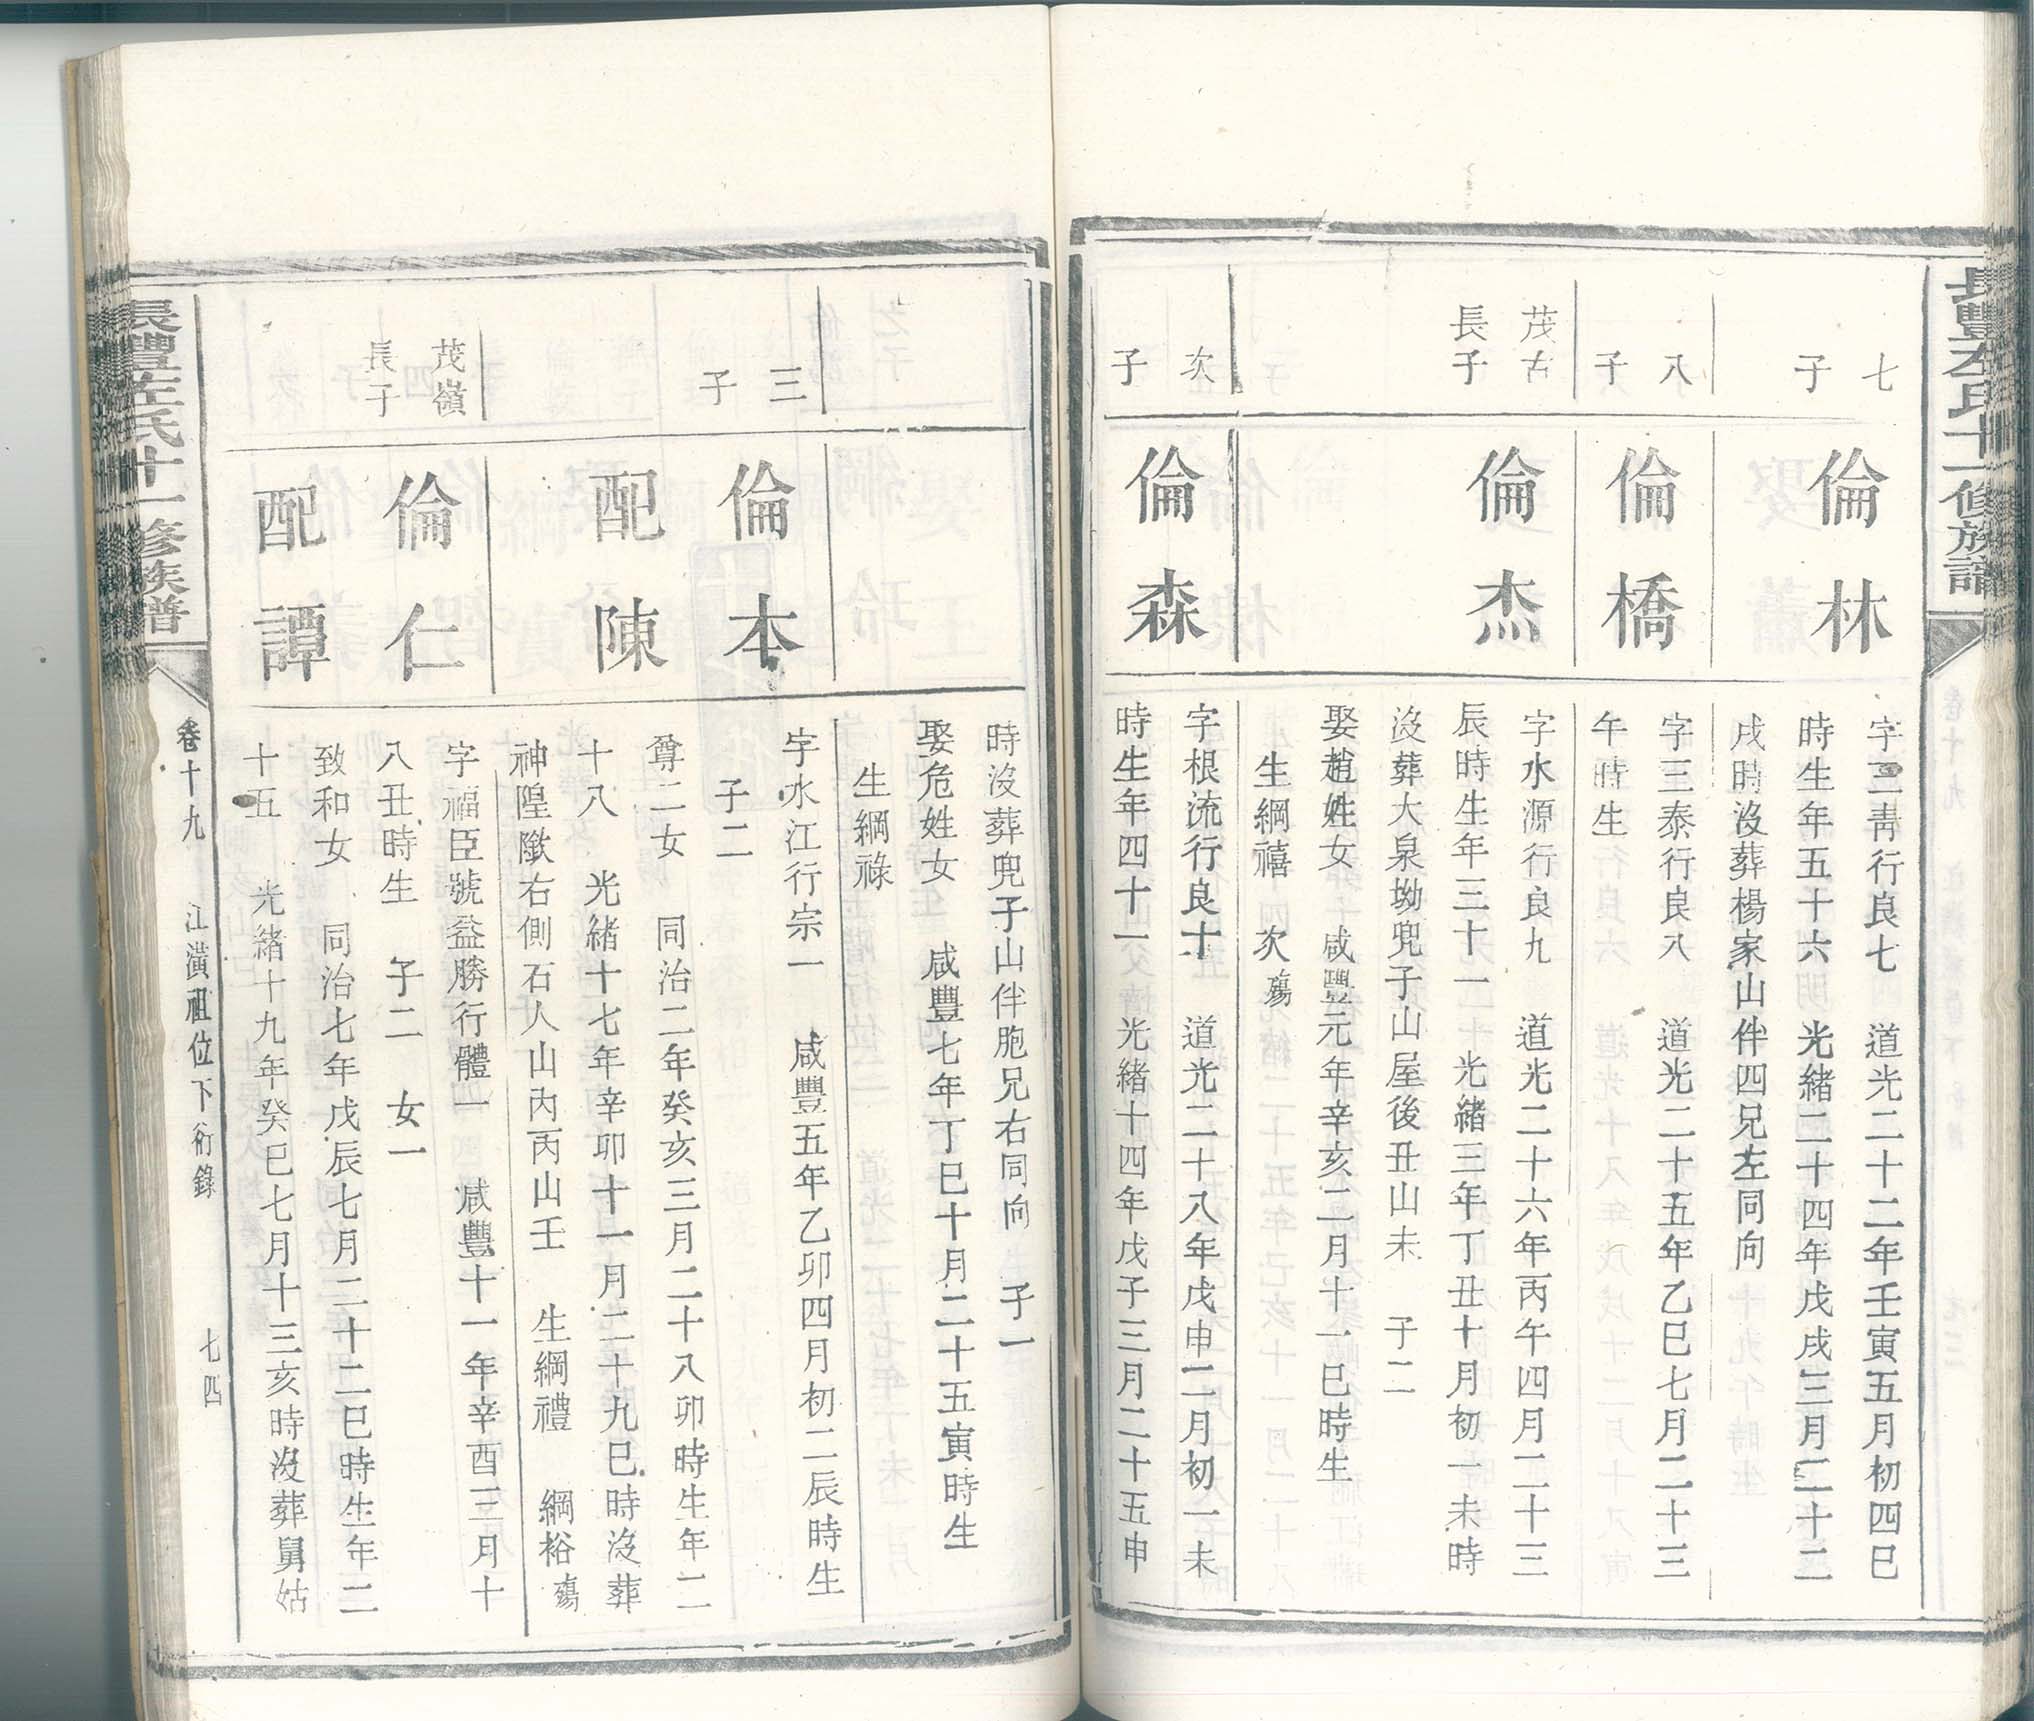 長豐左氏十一修族譜
七子
倫林
字三青行良七 道光二十二年壬寅五月初四巳
時生年五十六 光緒二十四年戊戌三月二十二
戌時沒葬楊家山伴四兄左同向
八子
倫橋
字三泰行良八 道光二十五年乙巳七月二十三
午時生
茂古長子
倫杰
字水源行良九 道光二十六年丙午四月二十三
辰時生年三十一 光緒三年丁丑十月初一未時
沒葬大泉坳兜子山屋後丑山未 子二
娶趙姓女 咸豐元年辛亥二月十一巳時生
生綱禧 次殤
次子
倫森
字根流行良十 道光二十八年戊申二月初一未
時生年四十一 光緒十四年戊子三月二十五申
時沒葬兜子山伴胞兄右同向 子一
娶危姓女 咸豐七年丁巳十月二十五寅時生
生綱祿
三子
倫本
字水江行宗一 咸豐五年乙卯四月初二辰時生
子二
配陳
尊二女 同治二年癸亥三月二十八卯時生年二
十八 光緒十七年辛卯十一月二十九巳時沒葬
神隍歘右側石人山內丙山壬 生綱禮 綱裕殤
茂嶺長子
倫仁
字福臣號益勝行體一 咸豐十一年辛酉三月十
八丑時生 子二 女一
配譚
致和女 同治七年戊辰七月二十二巳時生年二
十五 光緒十九年癸巳七月十三亥時沒葬舅姑
長豐左氏十一修族譜
卷十九 江潢祖位下衍錄 七四